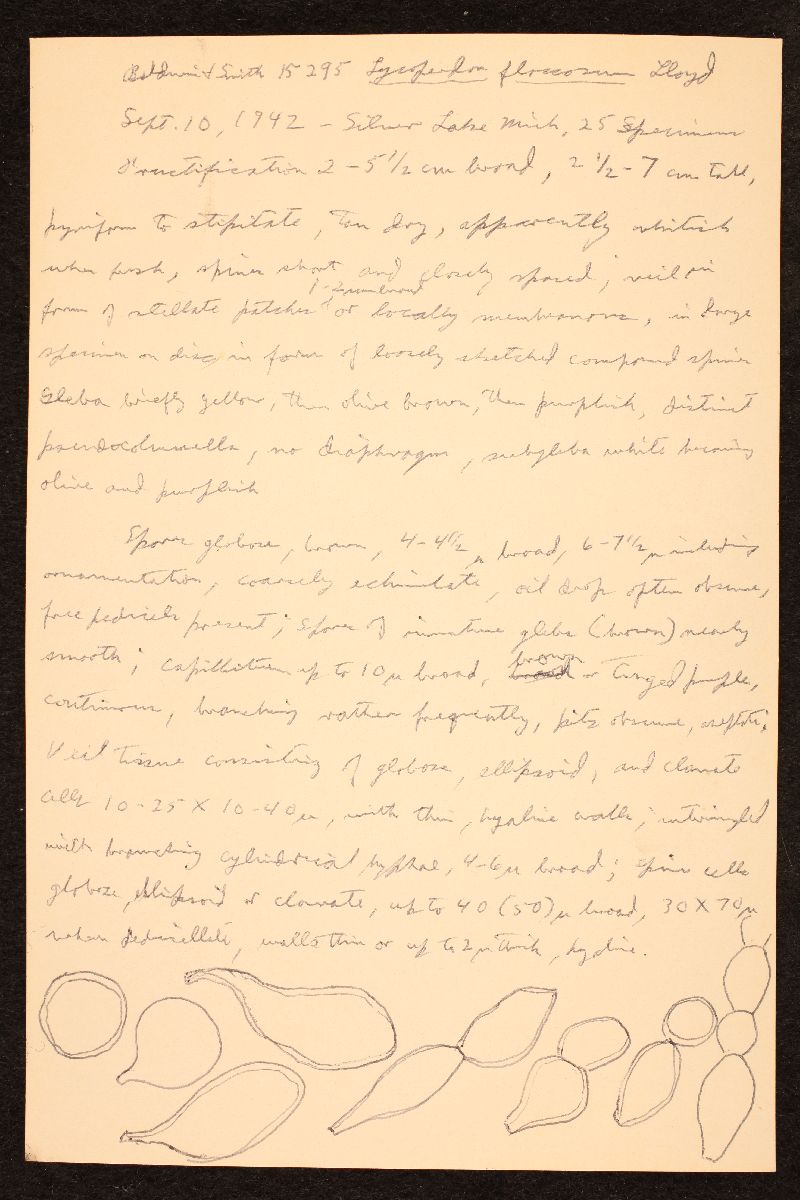 Baldwin & Smith 15295 Lycoperdon floccosum Lloyd
Sept. 10, 1942 - Silver Lake Mich, 25 Specimens
Fructification 2 - 5 1/2 cm broad, 2 1/2 - 7 cm tall,
pyriform to stipitate, tan dry, apparently whitish
when fresh, spines short and closely spaced; veil in
1-2 mm broad
form of stellate patches or locally membranous, in large
specimen on disc in form of loosely stretched compound spines
Gleba briefly yellow, then olive brown, then purplish, distinct
pseudocolumella, no diaphragm, subgleba white becoming
olive and purplish
Spores globose, brown, 4-4 1/2 µ broad, 6-7 1/2 µ including
ornamentation, coarsely echinulate, oil drop often obscure,
free pedicels present; spores of immature gleba (brown) nearly
smooth; capillitium up to 10 µ broad, brown or tinged purple,
continuous, branching rather frequently, pits obscure, aseptate;
Veil tissue consisting of globose, ellipsoid, and clavate
cells 10-25 X 10-40 µ, with thin, hyaline walls; intermingled
with branching cylindrical hyphae, 4-6 µ broad; spine cells
globose, ellipsoid or clavate, up to 40 (50) µ broad, 30 X 70 µ
when pedicellate, walls thin or up to 2 µ thick, hyaline.